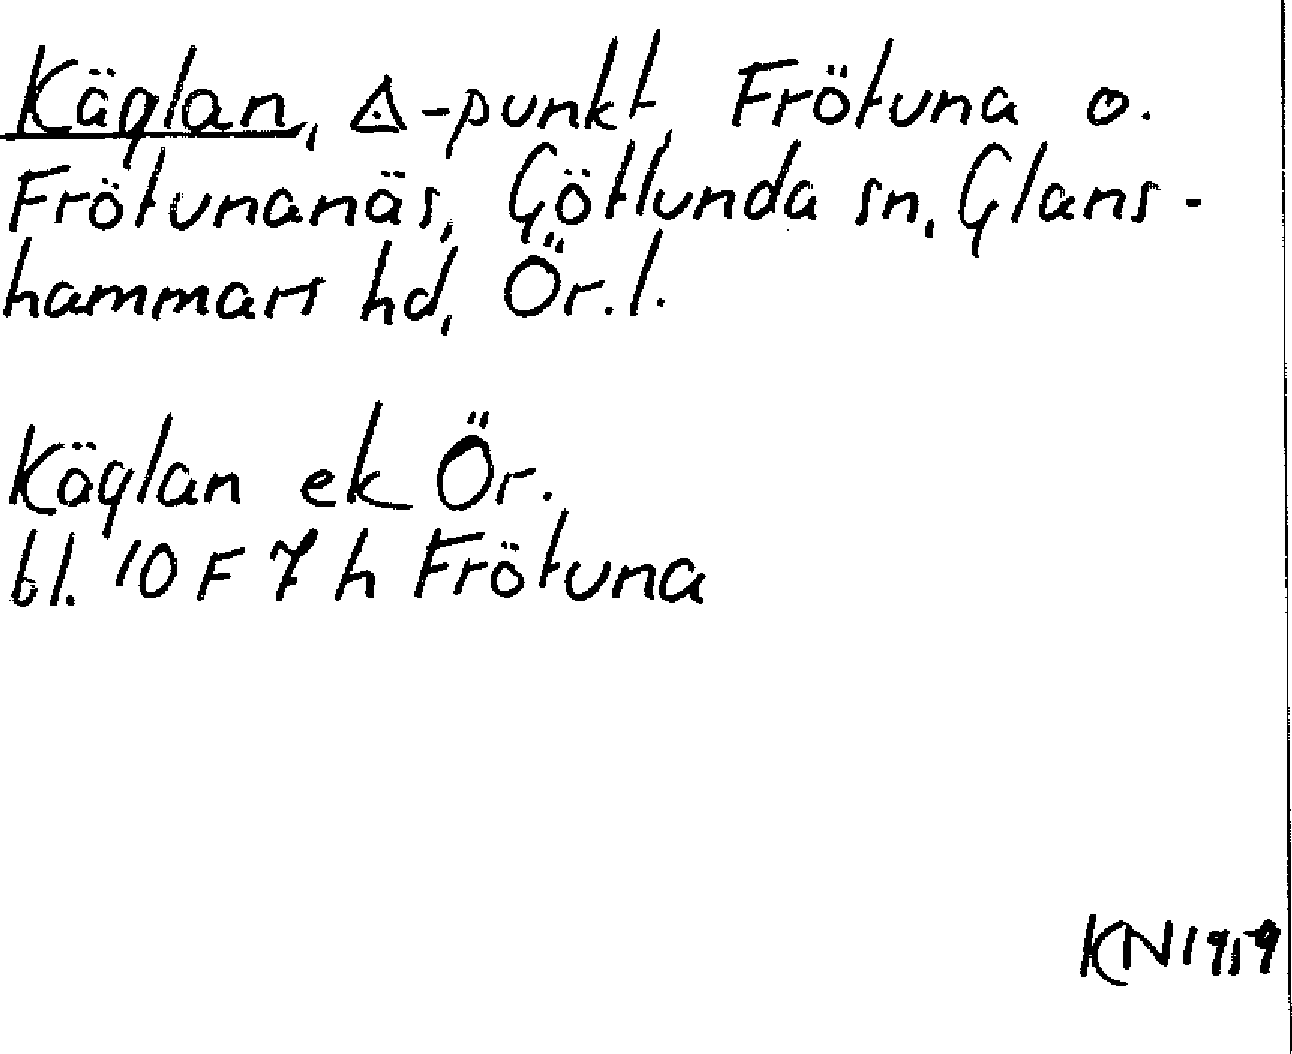 Käglan, ◬-punkt, Frötuna o.
Frötunanäs, Götlunda sn, Glans-
hammars hd, Ör.l.
Käglan ek Ör.
bl. 10 F 7 h Frötuna
KN